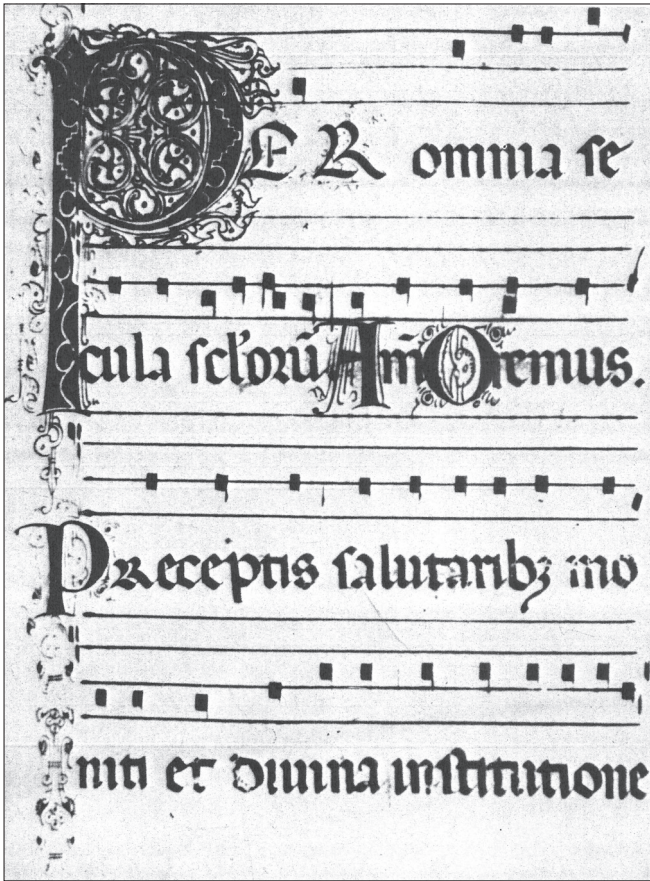 PER omnia se
cula sclorũ Am̃ Oremus.
Preceptis salutaribꝫ mo
niti et divina institutione